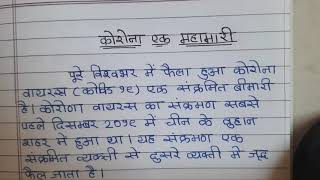 कोरोना एक महामारी
पूरे विश्वभर में फैला हुआ कोरोना
वायरस (कोविड १९) एक संक्रमित बीमारी
है। कोरोना वायरस का संक्रमण सबसे
पहले दिसम्बर २०१९ में चीन के वुहान
शहर में हुआ था। यह संक्रमण एक
संक्रमित व्यक्ती से दुसरे व्यक्ती में जल्द
फैल जाता है।